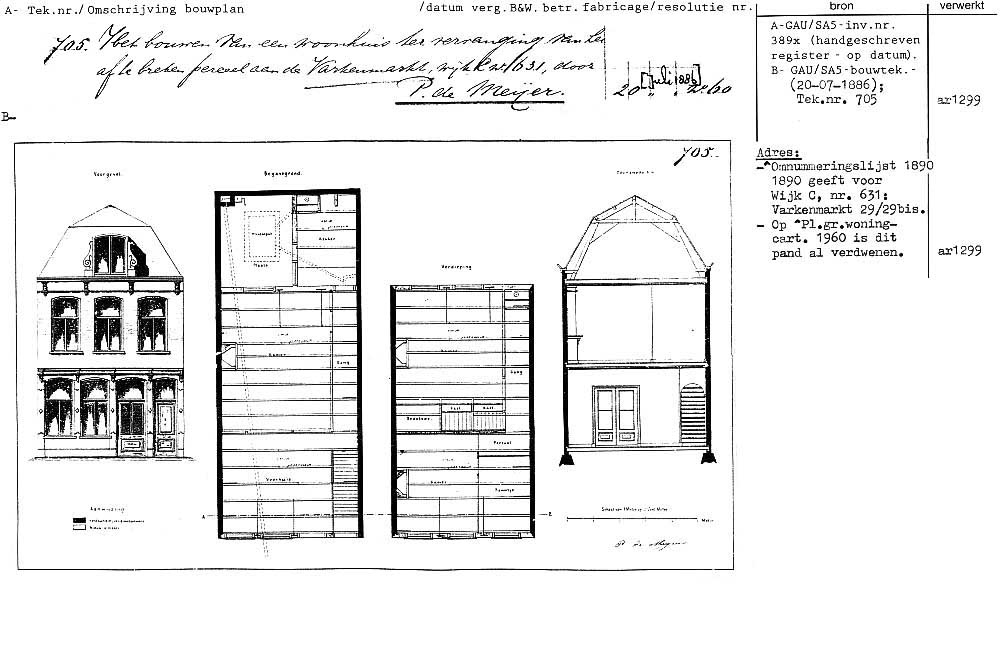 A- Tek.nr./Omschrijving bouwplan /datum verg.B&W. betr. fabricage/resolutie nr. bron verwerkt
705. Het bouwen van een woonhuis ter vervanging van het
af te breken perceel aan de Varkenmarkt, wijk C no 631, door
P. de Meijer.
[Juli 1886]
20
A-GAU/SA5-inv.nr.
389x (handgeschreven
register - op datum).
B- GAU/SA5-bouwtek.-
(20-07-1886);
Tek.nr. 705 ar1299
B-
705.
Adres:
-*Omnummeringslijst 1890
1890 geeft voor
Wijk C, nr. 631:
Varkenmarkt 29/29bis.
- Op *Pl.gr.woning-
cart. 1960 is dit
pand al verdwenen. ar1299
Voorgevel.
Begane grond.
Verdieping
Plaats
Keuken
Kamer
Gang
Voorhuis
Kamer
Gang
Kast
Kast
Portaal
Kamer
Kamertje
A
B
Aanwijzing
Meter
P. de Meijer